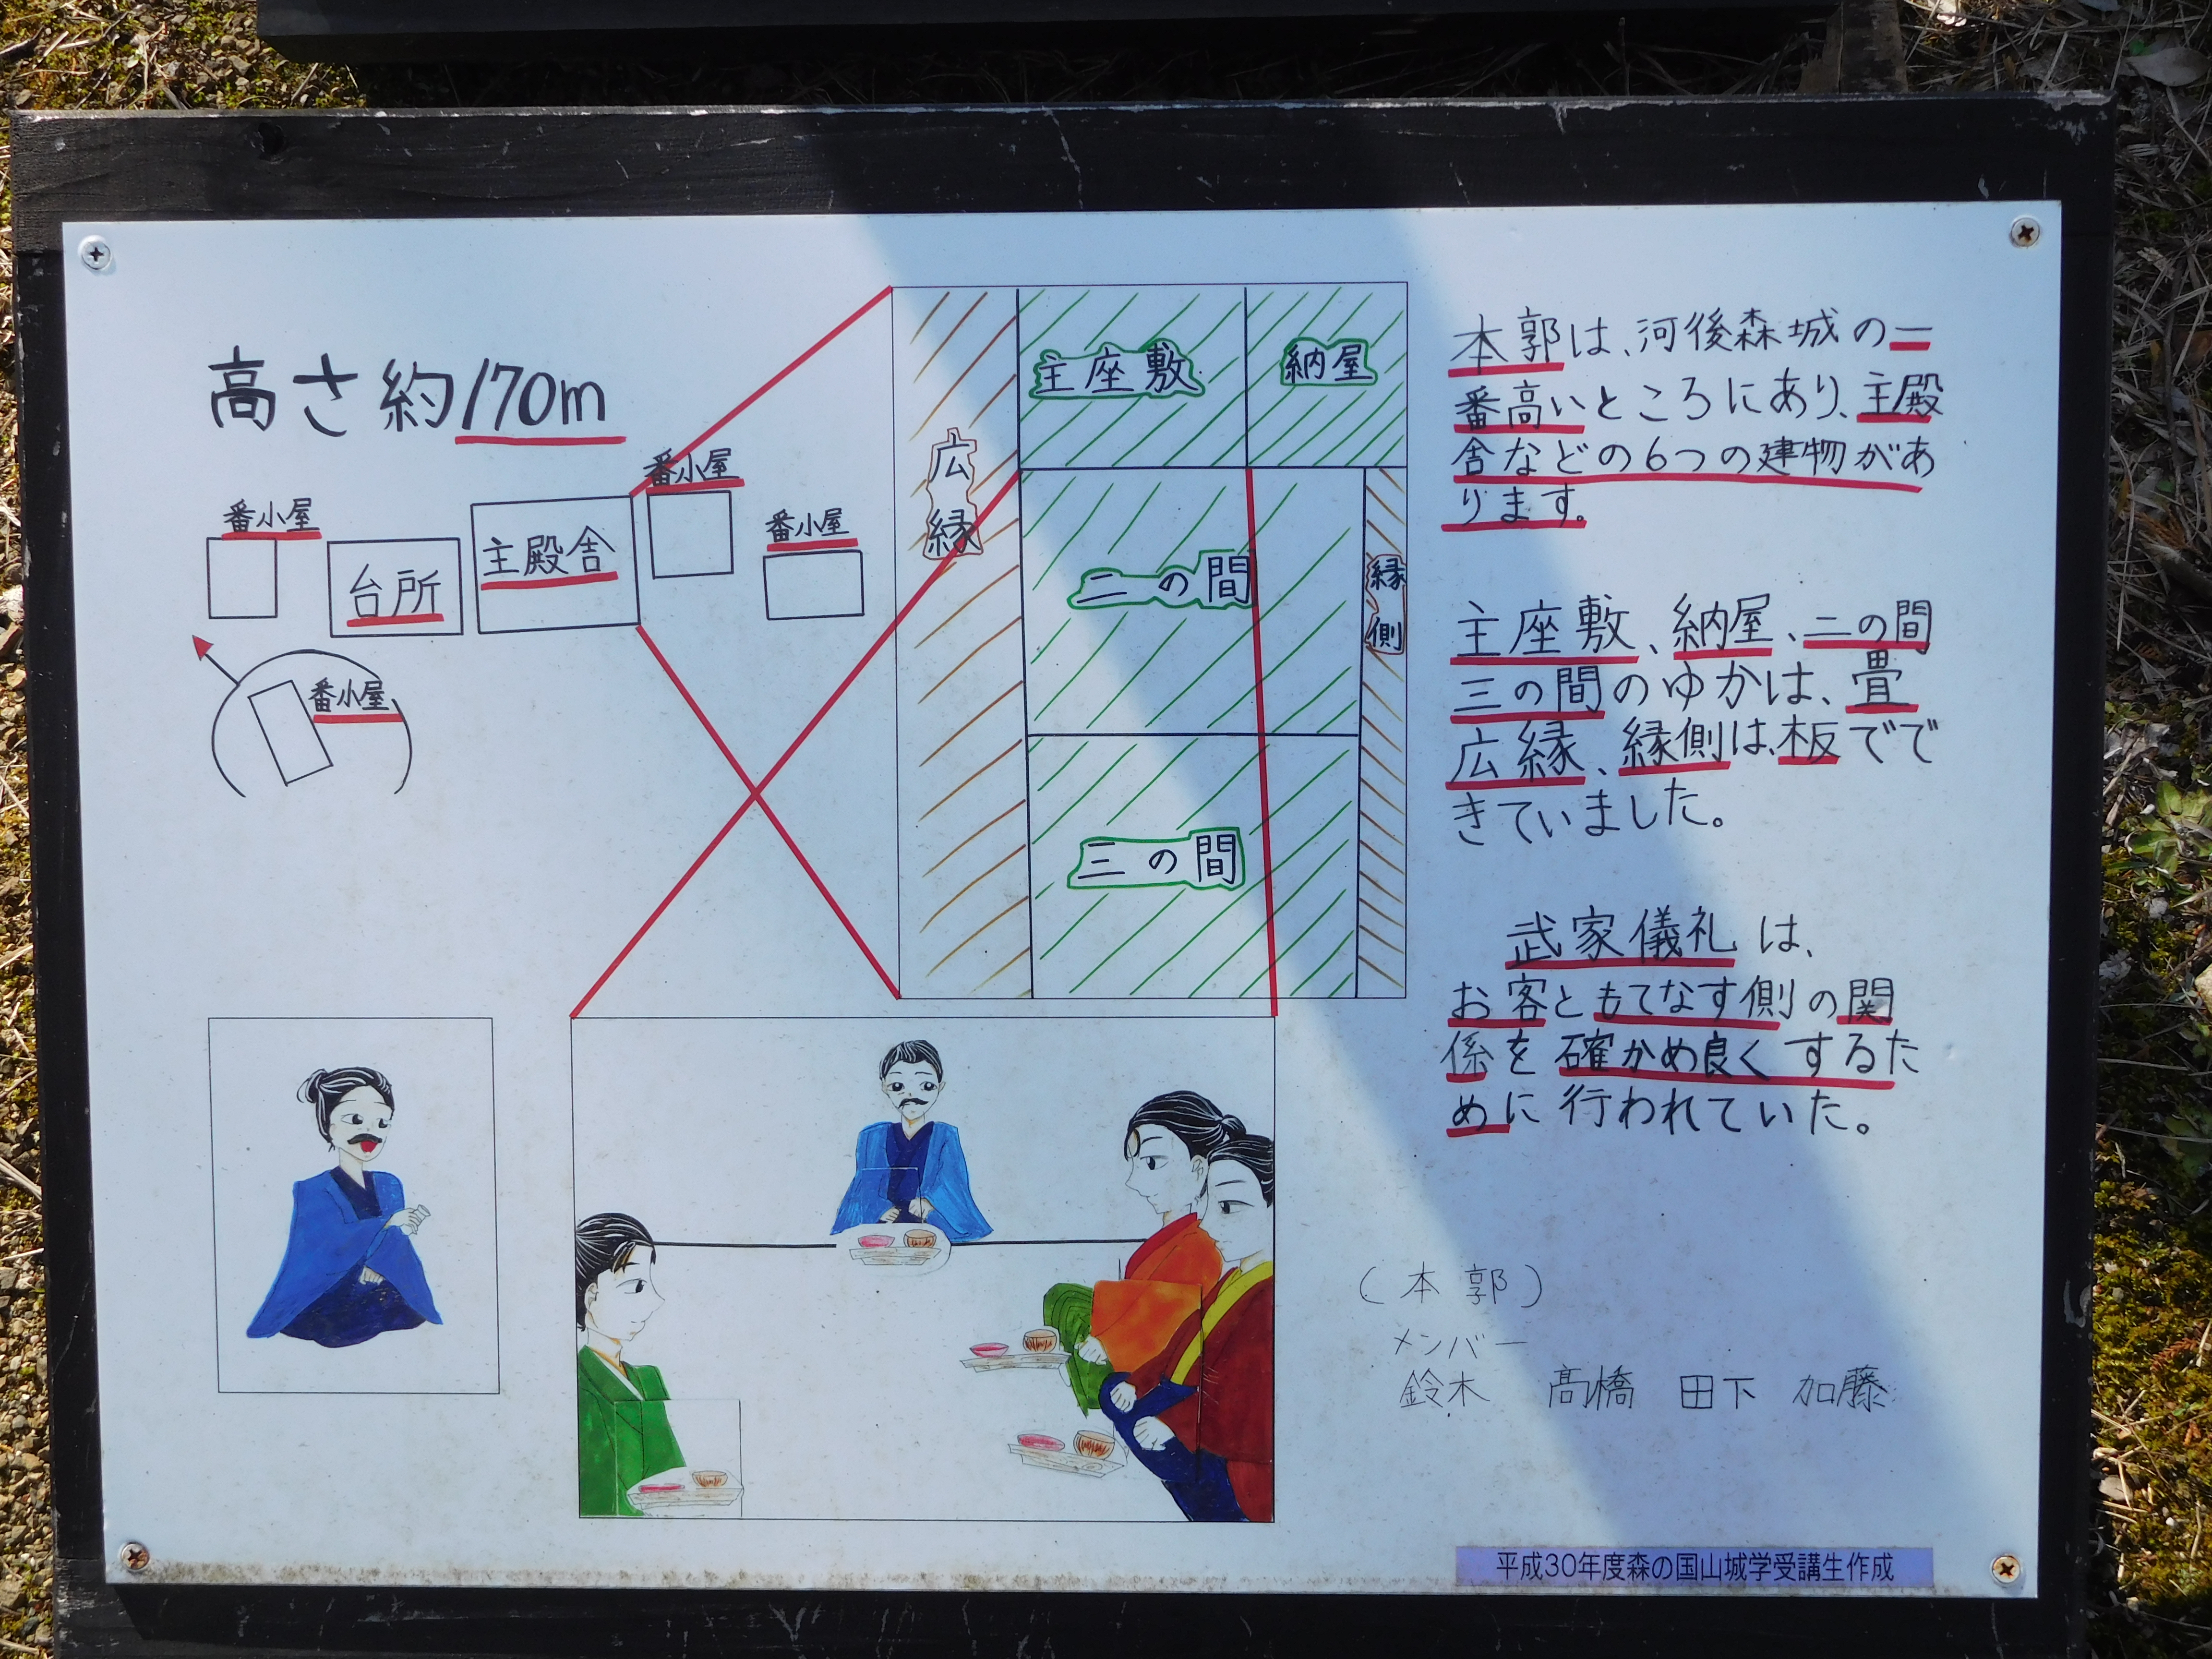 高さ約170m
番小屋
台所
主殿舎
番小屋
番小屋
番小屋
主座敷
納屋
広縁
二の間
縁側
三の間
本郭は、河後森城の一
番高いところにあり、主殿
舎などの6つの建物があ
ります。
主座敷、納屋、二の間
三の間のゆかは、畳
広縁、縁側は、板でで
きていました。
武家儀礼は、
お客ともてなす側の関
係を確かめ良くするた
めに行われていた。
(本郭)
メンバー
鈴木 髙橋 田下 加藤
平成30年度森の国山城学受講生作成